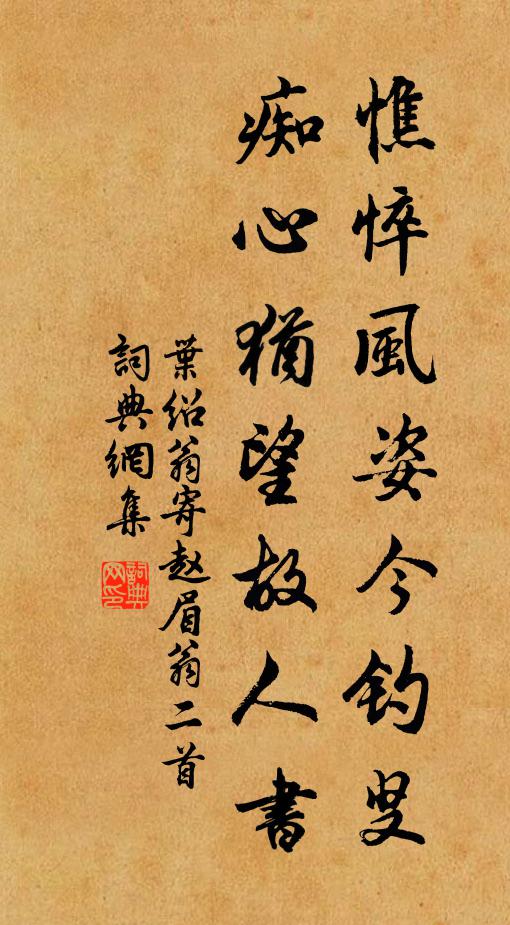 憔悴風姿今釣叟
痴心猶望故人書
葉绍翁寄赵眉翁二首
詞典網集
詞典网印